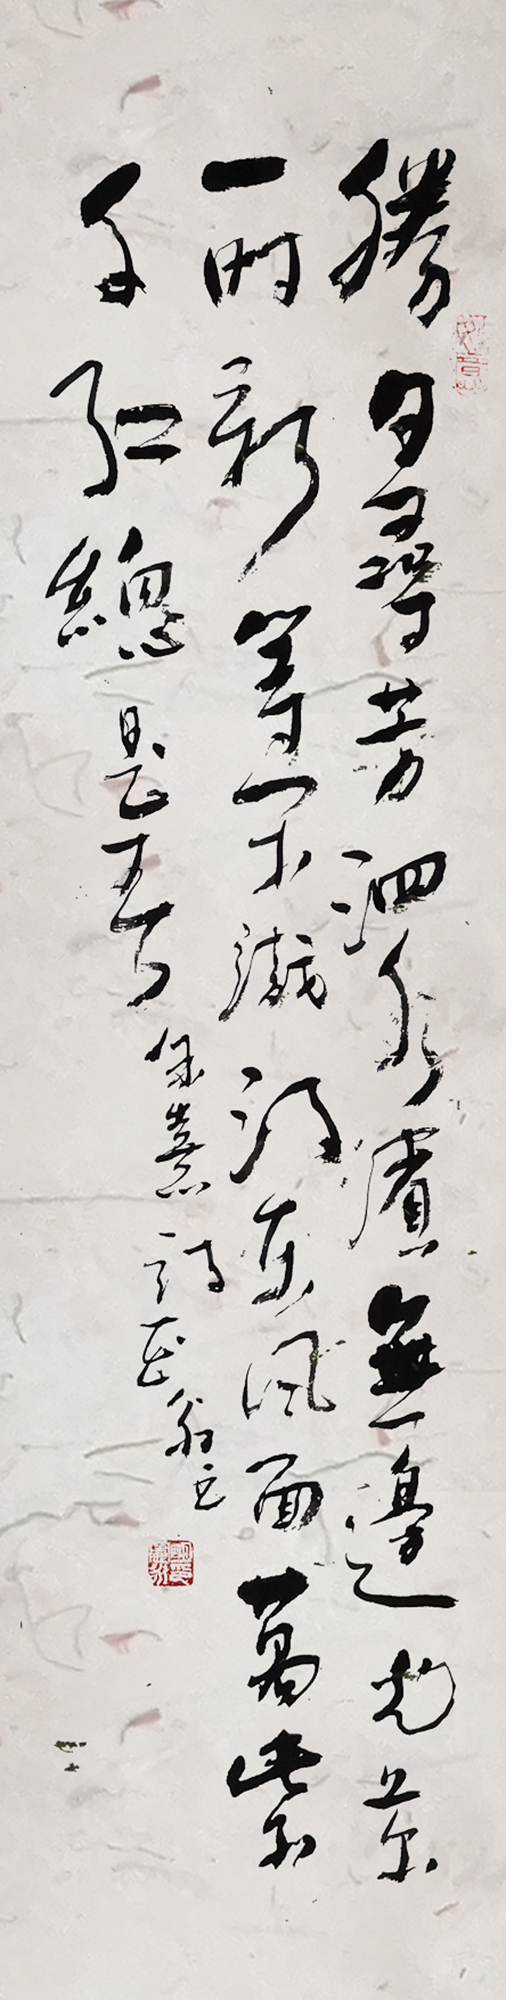 勝日尋芳泗水濱無邊光景
一時新等閑識得東風面萬紫
千紅總是春
朱熹詩